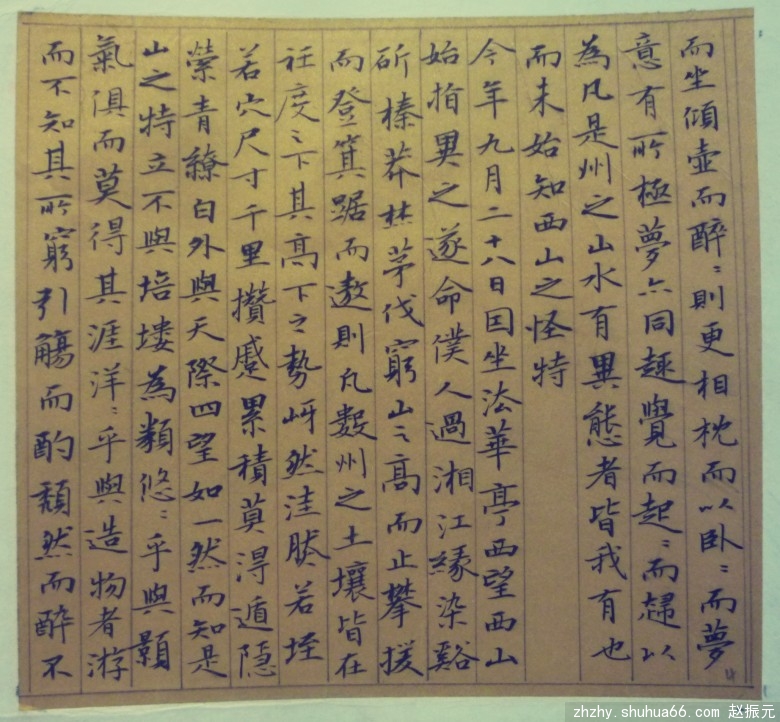 而坐傾壺而醉〻則更相枕而以卧〻而夢
意有所極夢亦同趣覺而起〻而歸以
為凡是州之山水有異態者皆我有也
而未始知西山之怪特
今年九月二十八日因坐法華亭西望西山
始指異之遂命僕人過湘江緣染谿
斫榛莽焚茅伐窮山之高而止攀援
而登箕踞而遨則凡數州之土壤皆在
衽度〻下其高下之勢岈然洼然若垤
若穴尺寸千里攢蹙累積莫得遁隱
縈青繚白外與天際四望如一然而知是
山之特立不與培塿為類悠〻乎與顥
氣俱而莫得其涯洋〻乎與造物者游
而不知其所窮引觴而酌頹然而醉不
4
zhzhy.shuhua66.com 赵振元